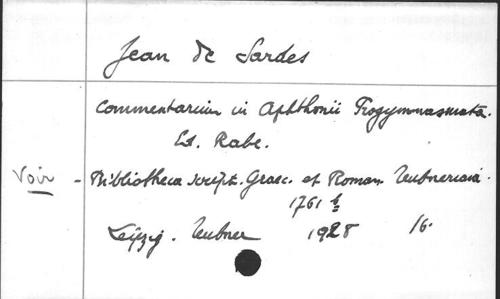 Jean de Sardes
Commentarium in Aphthonii Progymnasmata.
Ed. Rabe.
Voir - Bibliotheca script. Graec. et Roman. Teubneriana.
1761 b
Leipzig. Teubner 1928 16.